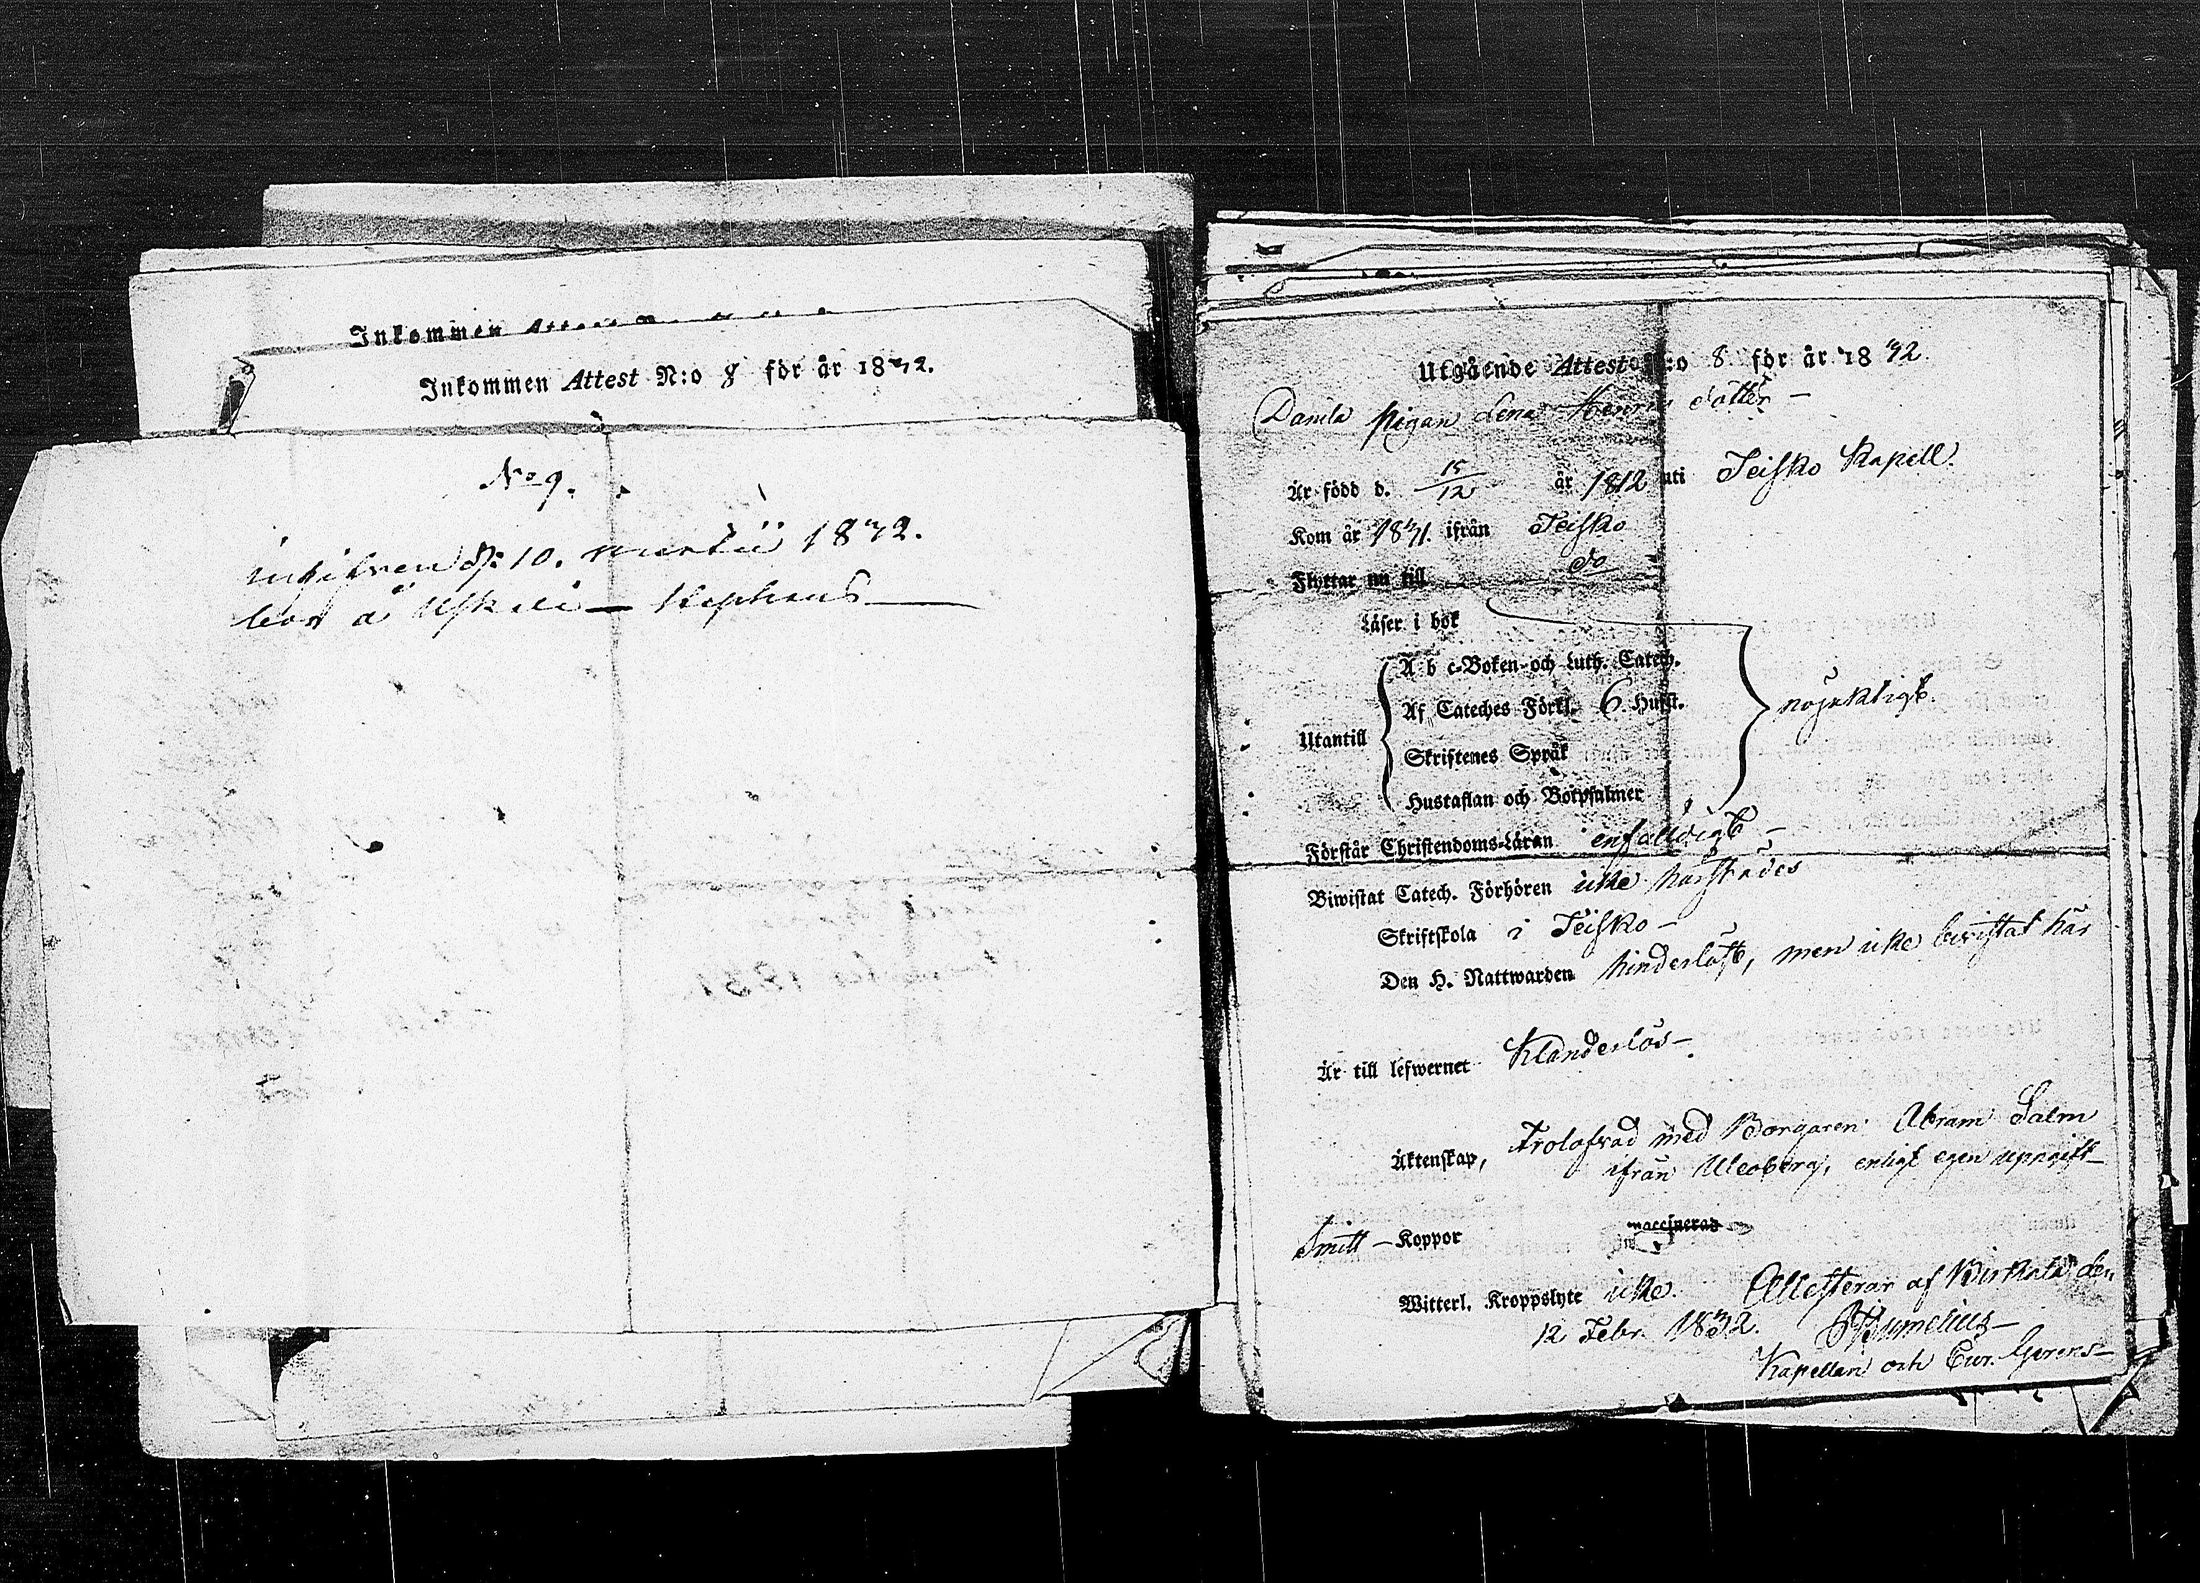 Inkommen Attest
Inkommen Attest N:o 8 för år 1832.
No 9.
ingifven d: 10. martii 1832.
bor å
Utgående Attest N:o 8 för år 1832.
Pigan Lena Henrics dotter –
Är född d. 15/12 år 1812 uti Teisko Kapell.
Kom år 1831. ifrån Teisko
Flyttar nu till do
Läser i bok
A b c-Boken och Luth. Catech.
Af Cateches Förkl. 6 Hufst.
nöjaktigt.
Utantill
Skriftenes Språk
Hustaflan och Botpsalmer
Förstår Christendoms-Läran enfaldigt –
Biwistat Catech. Förhören icke härstädes
Skriftskola i Teisko –
Den H. Nattwarden hinderlöst, men icke bevistat här
Är till lefwernet Klanderlös –
Äktenskap, Trolofvad med Borgaren Abram Salm
ifrån Uleoborg, enligt egen uppgift –
Smitt – Koppor vaccinerad
Witterl. Kroppslyte icke. Attesterar af Birkala den
12 Febr. 1832.
Kapellan och Cur. Gerens –